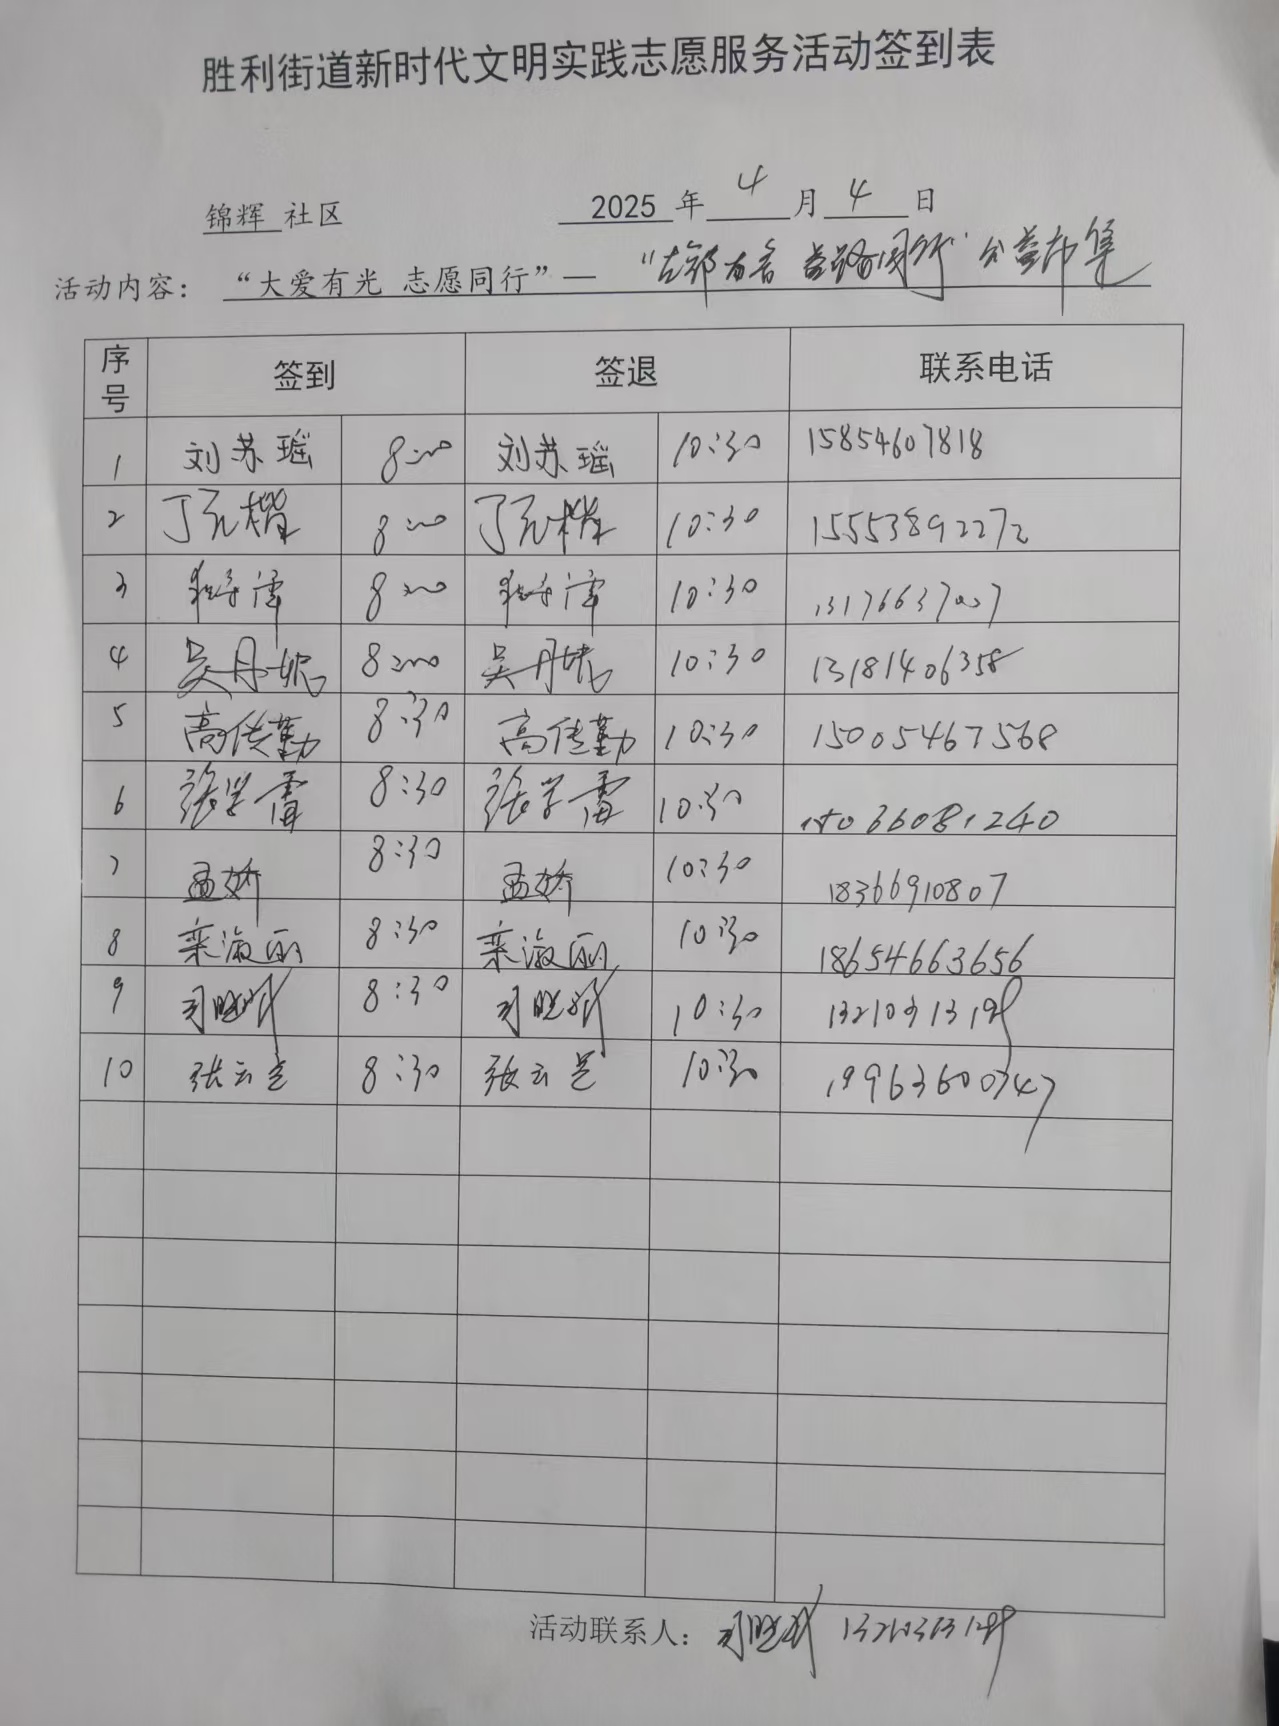 胜利街道新时代文明实践志愿服务活动签到表
锦辉 社区 2025 年 4 月 4 日
活动内容： “大爱有光 志愿同行”— 公益市集
序号 签到 签退 联系电话
1 刘苏瑶 8:00 刘苏瑶 10:30 15854607818
2 8:00 10:30 15553892272
3 8:00 10:30 13176637007
4 吴丹妮 8:00 吴丹妮 10:30 13181406358
5 高传勤 8:30 高传勤 10:30 15005467568
6 张学雷 8:30 张学雷 10:30
7 孟娇 8:30 孟娇 10:30 18366910807
8 栾淑丽 8:30 栾淑丽 10:30 18654663656
9 8:30 10:30
10 8:30 10:30
活动联系人：